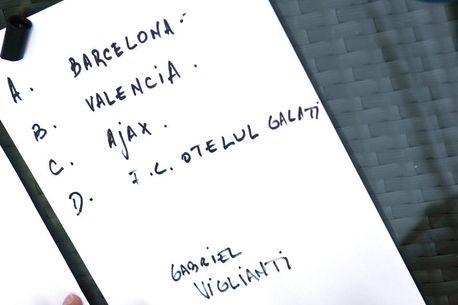 A. BARCELONA.
B. VALENCIA.
C. AJAX.
D. F.C. OTELUL GALATI
GABRIEL
VIGLIANTI